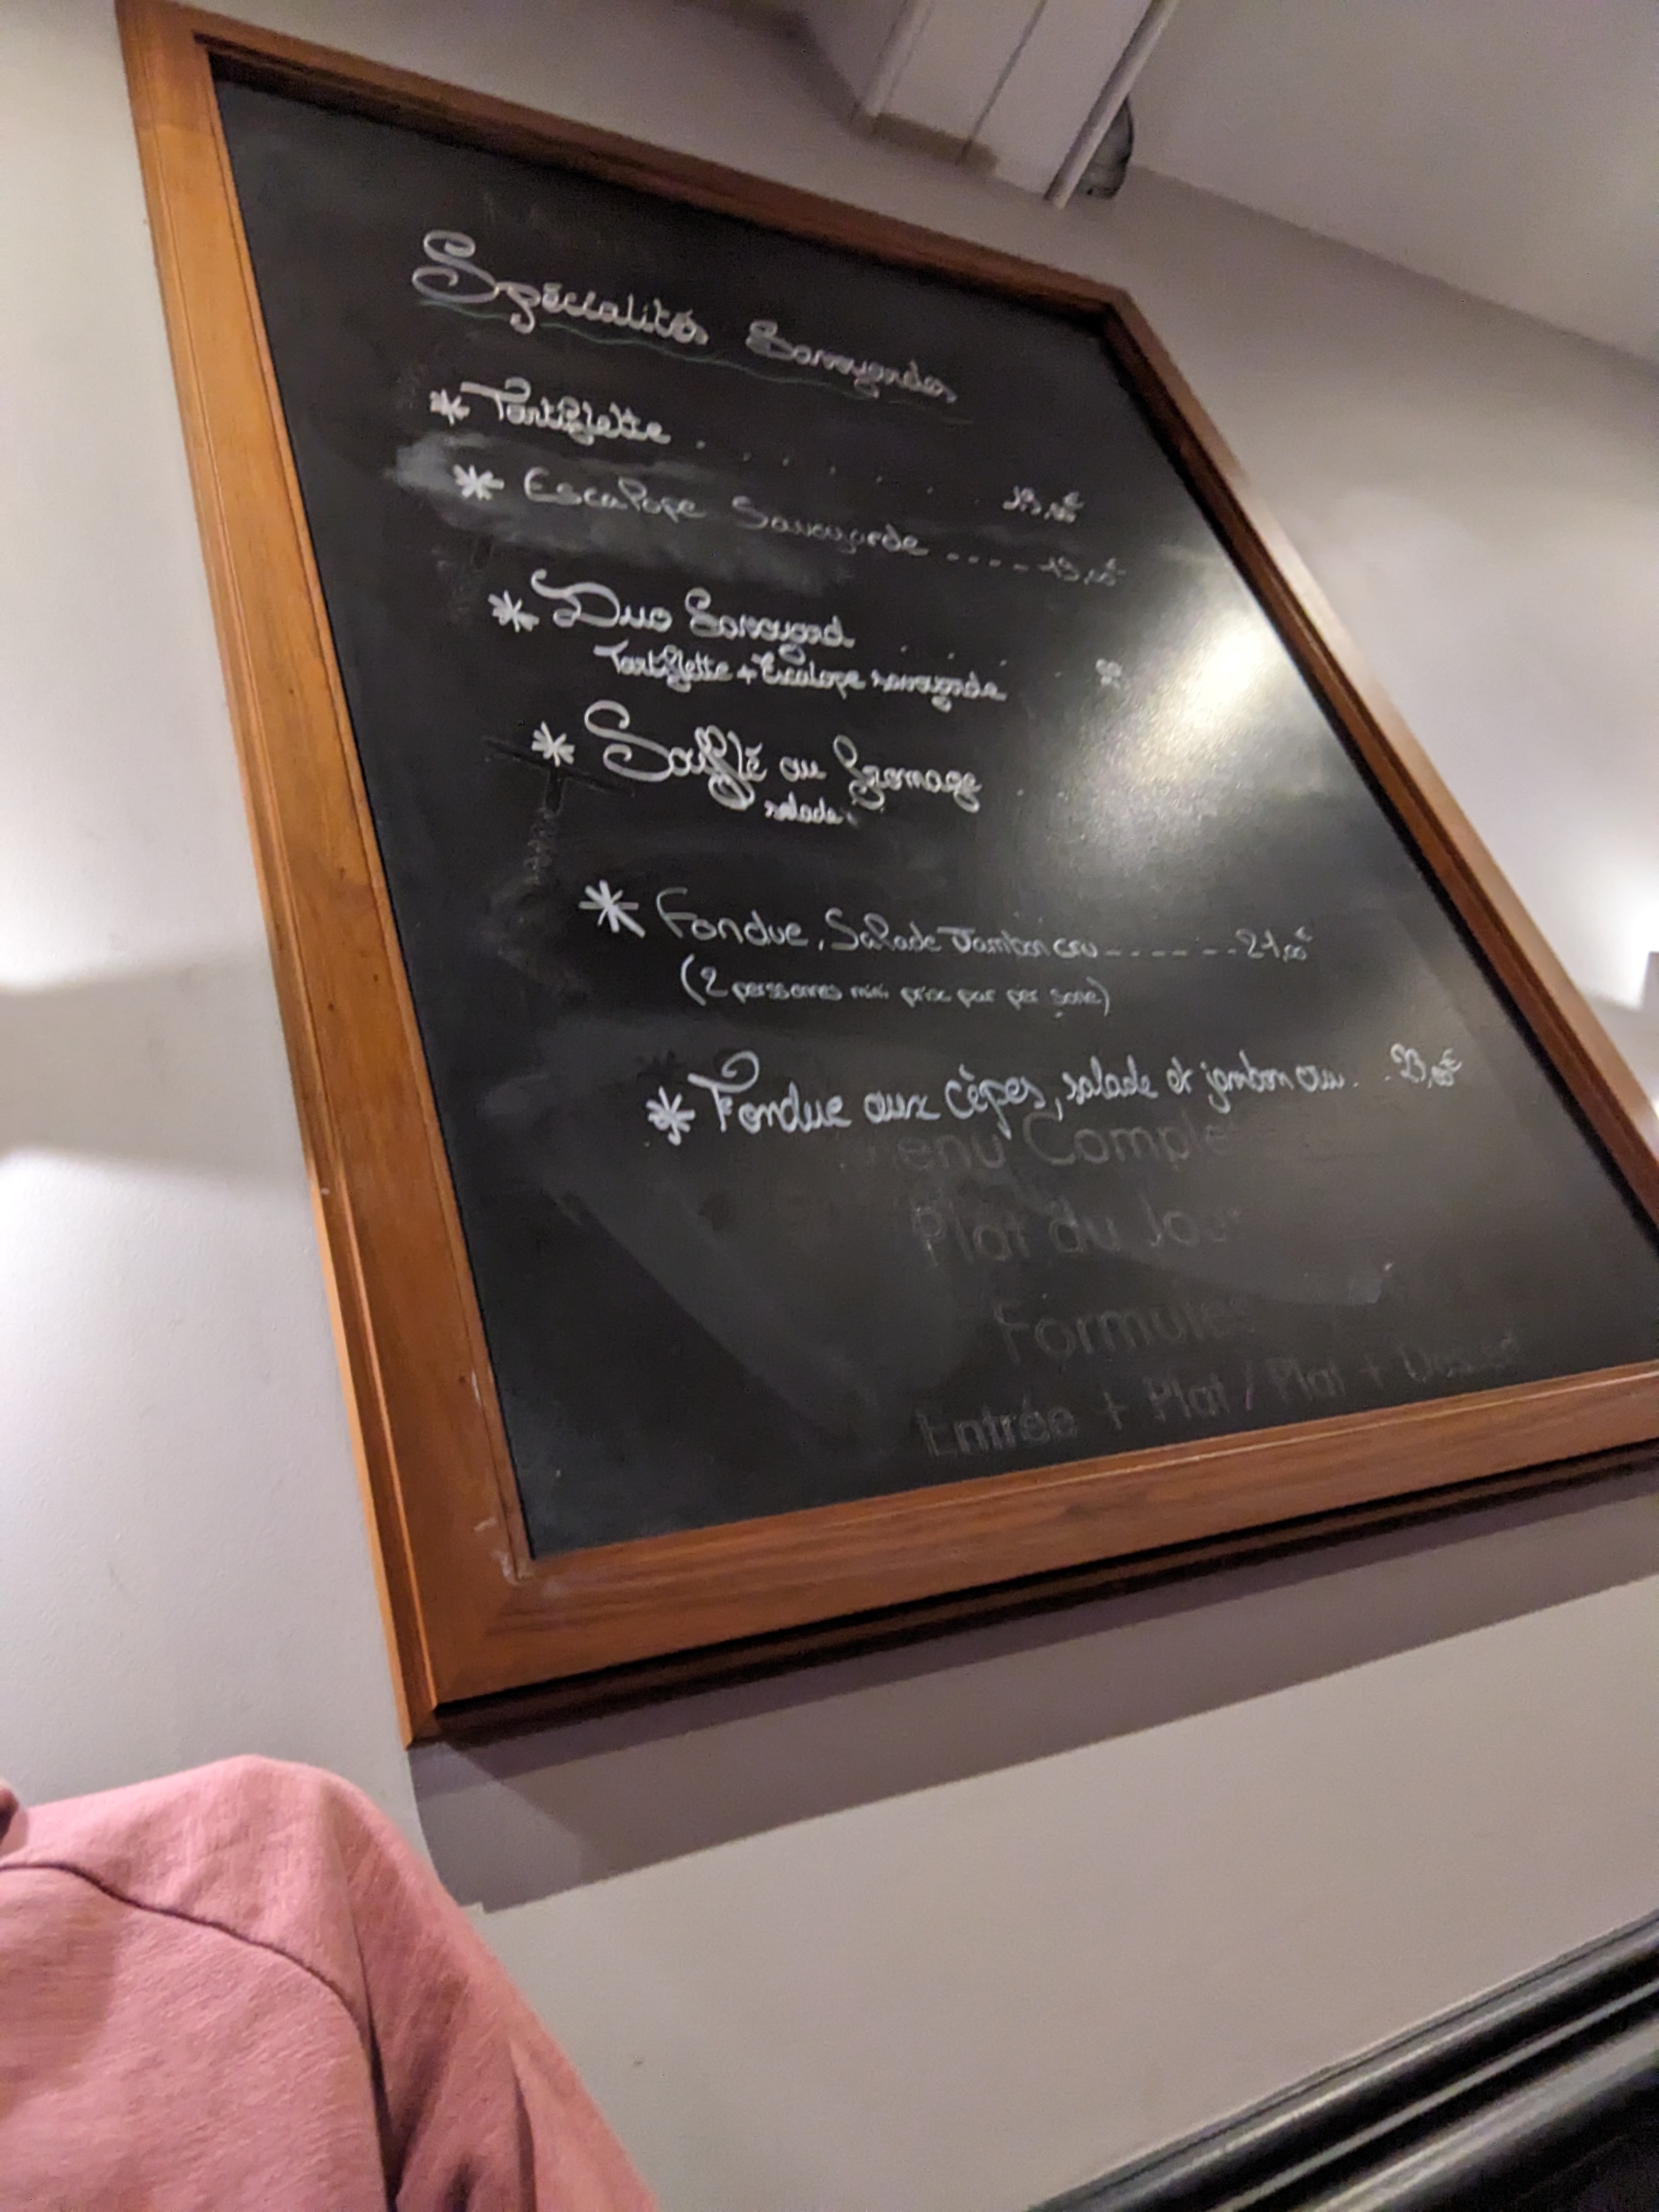 Spécialités Savoyardes
* Tartiflette . . . . . . . . 19,00€
* Escalope Savoyarde ..... 19,00€
* Duo Savoyard . . . .
Tartiflette + Escalope savoyarde
* Soufflé au fromage
salade
* Fondue, Salade Jambon cru ------ 21,00€
(2 perssonnes mini prix par per sone)
* Fondue aux cèpes, salade et jambon cru. . 23,00€
Menu Complet
Plat du Jour
Formules
Entrée + Plat / Plat + Dessert